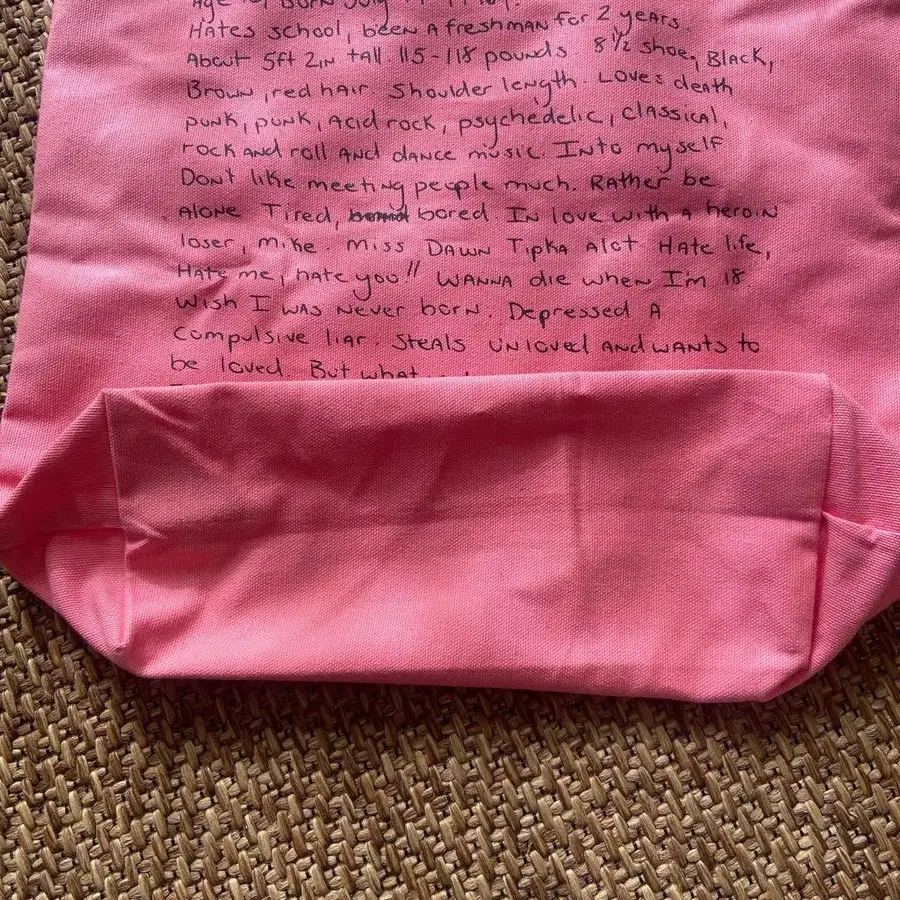 Hates school, been A freshman for 2 years.
About 5ft 2in tall. 115-118 pounds. 8 1/2 shoe, Black,
Brown, red hair. Shoulder length. Loves death
punk, punk, Acid rock, psychedelic, classical,
rock and roll and dance music. Into myself
Dont like meeting people much. Rather be
alone Tired, bored. In love with a heroin
loser, mike. Miss Dawn Tipka Alot Hate life,
Hate me, hate you!! WANNA die when I'm 18.
Wish I was never born. Depressed A
compulsive liar. Steals unloved and wants to
be loved. But what